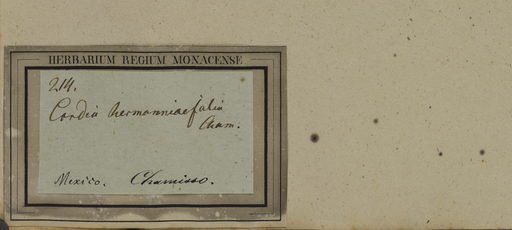 HERBARIUM REGIUM MONACENSE
214.
Cordia hermanniaefolia
Cham.
Mexico. Chamisso.